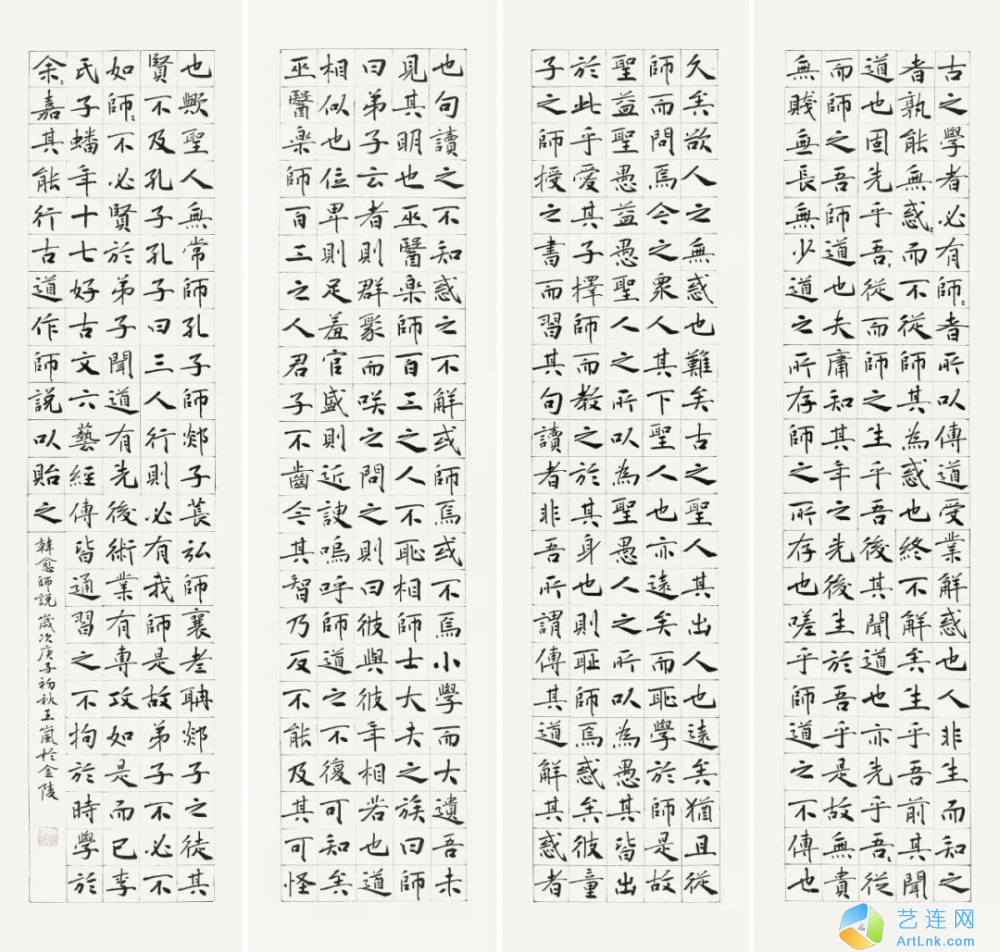 古之學者必有師〻者所以傳道受業解惑也人非生而知之
者孰能無惑〻而不從師其為惑也終不解矣生乎吾前其聞
道也固先乎吾〻從而師之生乎吾後其聞道也亦先乎吾〻從
而師之吾師道也夫庸知其年之先後生於吾乎是故無貴
無賤無長無少道之所存師之所存也嗟乎師道之不傳也
久矣欲人之無惑也難矣古之聖人其出人也遠矣猶且從
師而問焉今之衆人其下聖人也亦遠矣而恥學於師是故
聖益聖愚益愚聖人之所以為聖愚人之所以為愚其皆出
於此乎愛其子擇師而教之於其身也則恥師焉惑矣彼童
子之師授之書而習其句讀者非吾所謂傳其道解其惑者
也句讀之不知惑之不解或師焉或不焉小學而大遺吾未
見其明也巫醫樂師百工之人不恥相師士大夫之族曰師
曰弟子云者則群聚而咲之問之則曰彼與彼年相若也道
相似也位卑則足羞官盛則近諛嗚呼師道之不復可知矣
巫醫樂師百工之人君子不齒今其智乃反不能及其可怪
也歟聖人無常師孔子師郯子萇弘師襄老聃郯子之徒其
賢不及孔子孔子曰三人行則必有我師是故弟子不必不
如師〻不必賢於弟子聞道有先後術業有專攻如是而已李
氏子蟠年十七好古文六藝經傳皆通習之不拘於時學於
余〻嘉其能行古道作師說以貽之
韓愈師說歲次庚子初秋王嵐於金陵
艺连网
ArtLnk.com